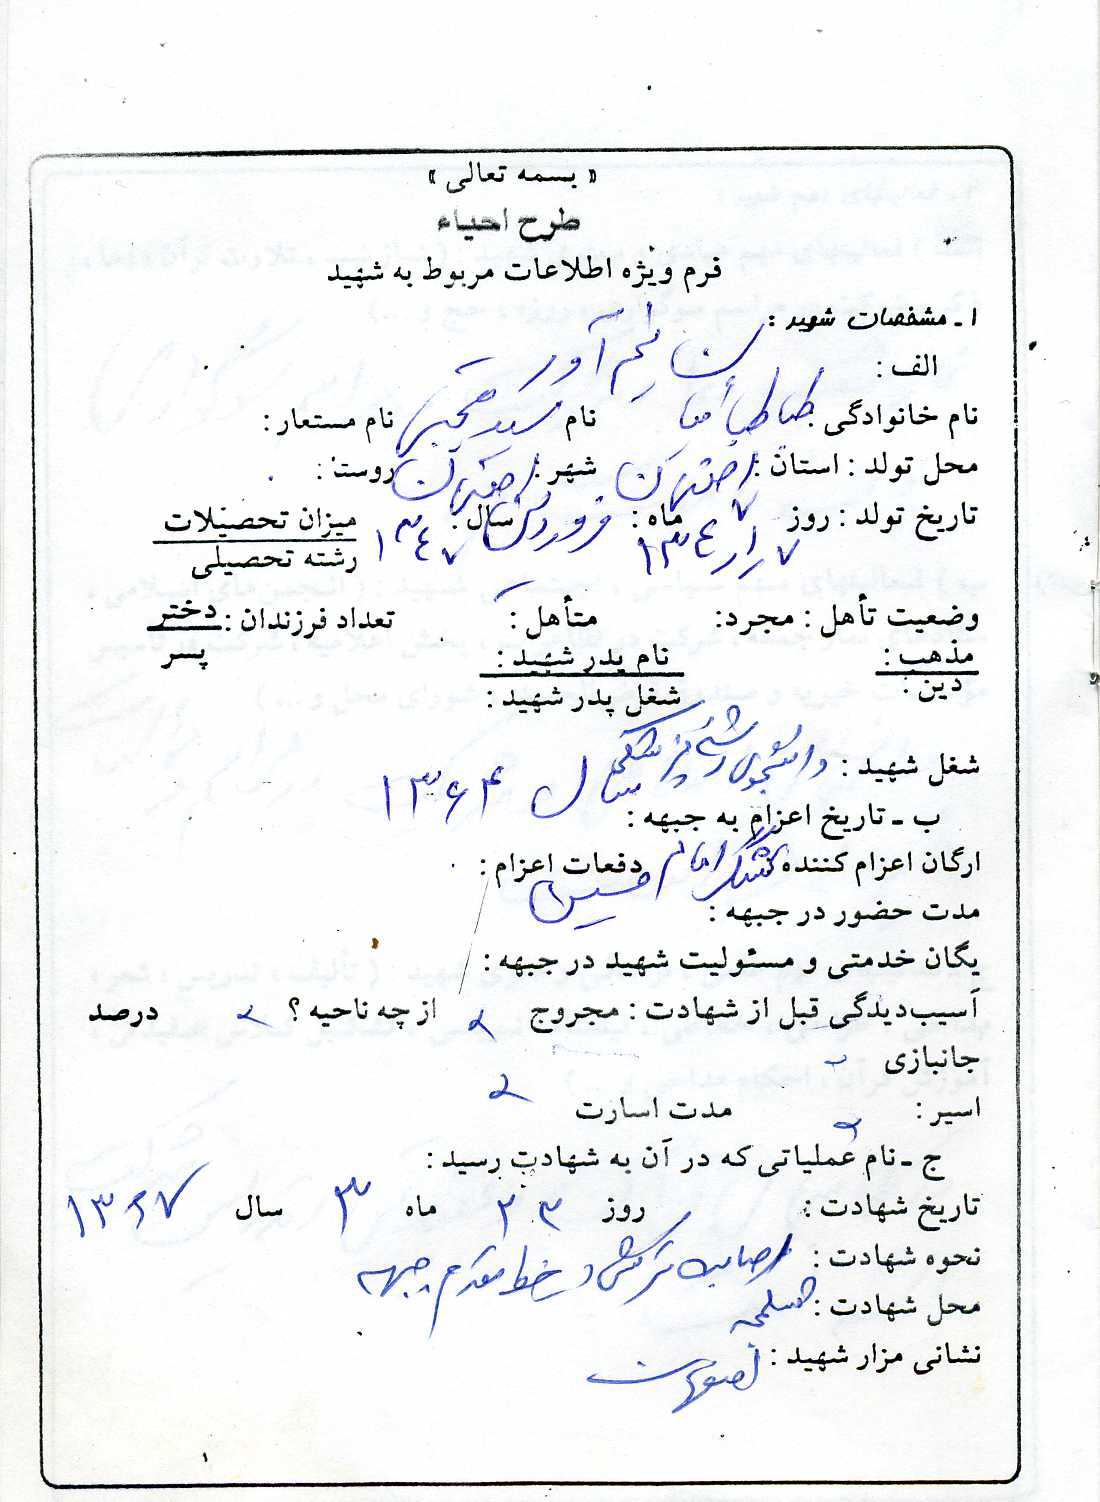 « بسمه تعالی »
طرح احیاء
فرم ویژه اطلاعات مربوط به شهید
۱ـ مشخصات شهید :
الف :
نام خانوادگی طباطبا نام سید مجتبی نام مستعار :
محل تولد : استان : اصفهان شهر : اصفهان روستا :
تاریخ تولد : روز ۷ ماه : فروردین سال : ۱۳۴۷ میزان تحصیلات
۱۳۴۷ رشته تحصیلی
وضعیت تأهل : مجرد : متأهل : تعداد فرزندان : دختر
پسر
مذهب : نام پدر شهید :
دین : شغل پدر شهید :
شغل شهید : دانشجوی رشته پزشکی
سال ۱۳۶۴
ب ـ تاریخ اعزام به جبهه :
ارگان اعزام کننده لشگر امام حسین دفعات اعزام :
مدت حضور در جبهه :
یگان خدمتی و مسئولیت شهید در جبهه :
آسیب‌دیدگی قبل از شهادت : مجروح از چه ناحیه ؟ درصد
جانبازی
اسیر : مدت اسارت
ج ـ نام عملیاتی که در آن به شهادت رسید :
تاریخ شهادت : روز ۲۳ ماه ۳ سال ۱۳۶۷
نحوه شهادت : اصابت ترکش در خط مقدم جبهه
محل شهادت : شلمچه
نشانی مزار شهید : اصفهان
۱